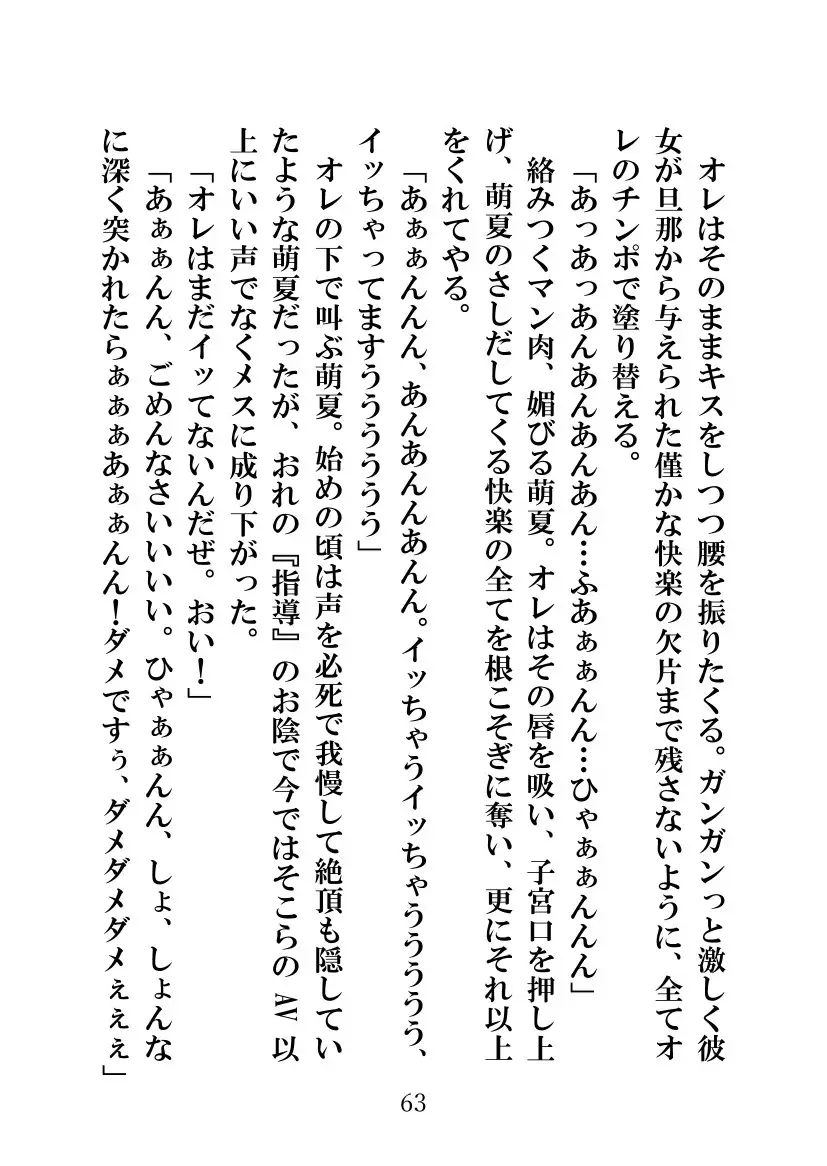 オレはそのままキスをしつつ腰を振りたくる。ガンガンっと激しく彼
女が旦那から与えられた僅かな快楽の欠片まで残さないように、全てオ
レのチンポで塗り替える。
「あっあっあんあんあんあん…ふあぁぁんん…ひゃぁぁんんん」
絡みつくマン肉、媚びる萌夏。オレはその唇を吸い、子宮口を押し上
げ、萌夏のさしだしてくる快楽の全てを根こそぎに奪い、更にそれ以上
をくれてやる。
「あぁぁんんん、あんあんんあんん。イッちゃうイッちゃうううううう、
イッちゃってますうううううう」
オレの下で叫ぶ萌夏。始めの頃は声を必死で我慢して絶頂も隠してい
たような萌夏だったが、おれの『指導』のお陰で今ではそこらの AV 以
上にいい声でなくメスに成り下がった。
「オレはまだイッてないんだぜ。おい！」
「あぁぁんん、ごめんなさいいいい。ひゃぁぁんん、しょ、しょんな
に深く突かれたらぁぁぁあぁぁんん！ダメですぅ、ダメダメダメぇぇぇ」
63